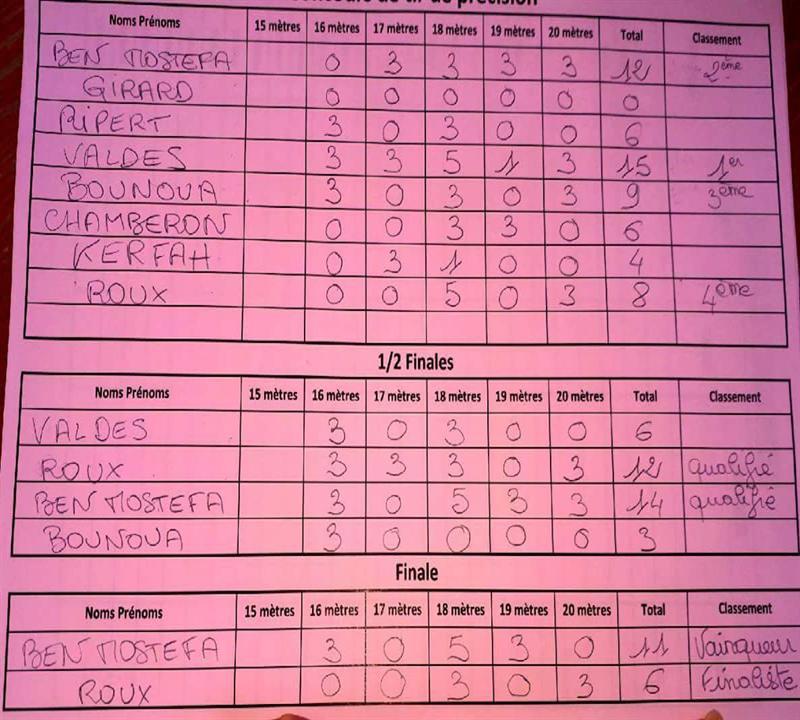 Noms Prénoms 15 mètres 16 mètres 17 mètres 18 mètres 19 mètres 20 mètres Total Classement
BEN MOSTEFA 0 3 3 3 3 12 2ème
GIRARD 0 0 0 0 0 0
RIPERT 3 0 3 0 0 6
VALDES 3 3 5 1 3 15 1er
BOUNOUA 3 0 3 0 3 9 3ème
CHAMBERON 0 0 3 3 0 6
KERFAH 0 3 1 0 0 4
ROUX 0 0 5 0 3 8 4ème
1/2 Finales
Noms Prénoms 15 mètres 16 mètres 17 mètres 18 mètres 19 mètres 20 mètres Total Classement
VALDES 3 0 3 0 0 6
ROUX 3 3 3 0 3 12 qualifié
BEN MOSTEFA 3 0 5 3 3 14 qualifié
BOUNOUA 3 0 0 0 0 3
Finale
Noms Prénoms 15 mètres 16 mètres 17 mètres 18 mètres 19 mètres 20 mètres Total Classement
BEN MOSTEFA 3 0 5 3 0 11 Vainqueur
ROUX 0 0 3 0 3 6 Finaliste